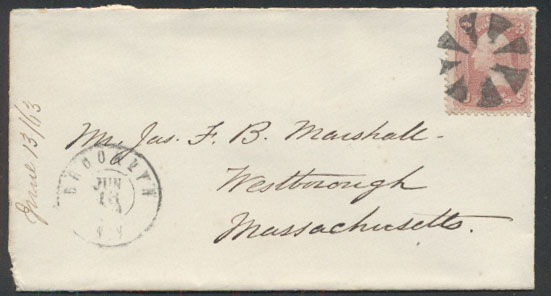 June 13/63
Mr. Jas. F. B. Marshall.
Westborough
Massachusetts.
BROOKLYN
JUN
13